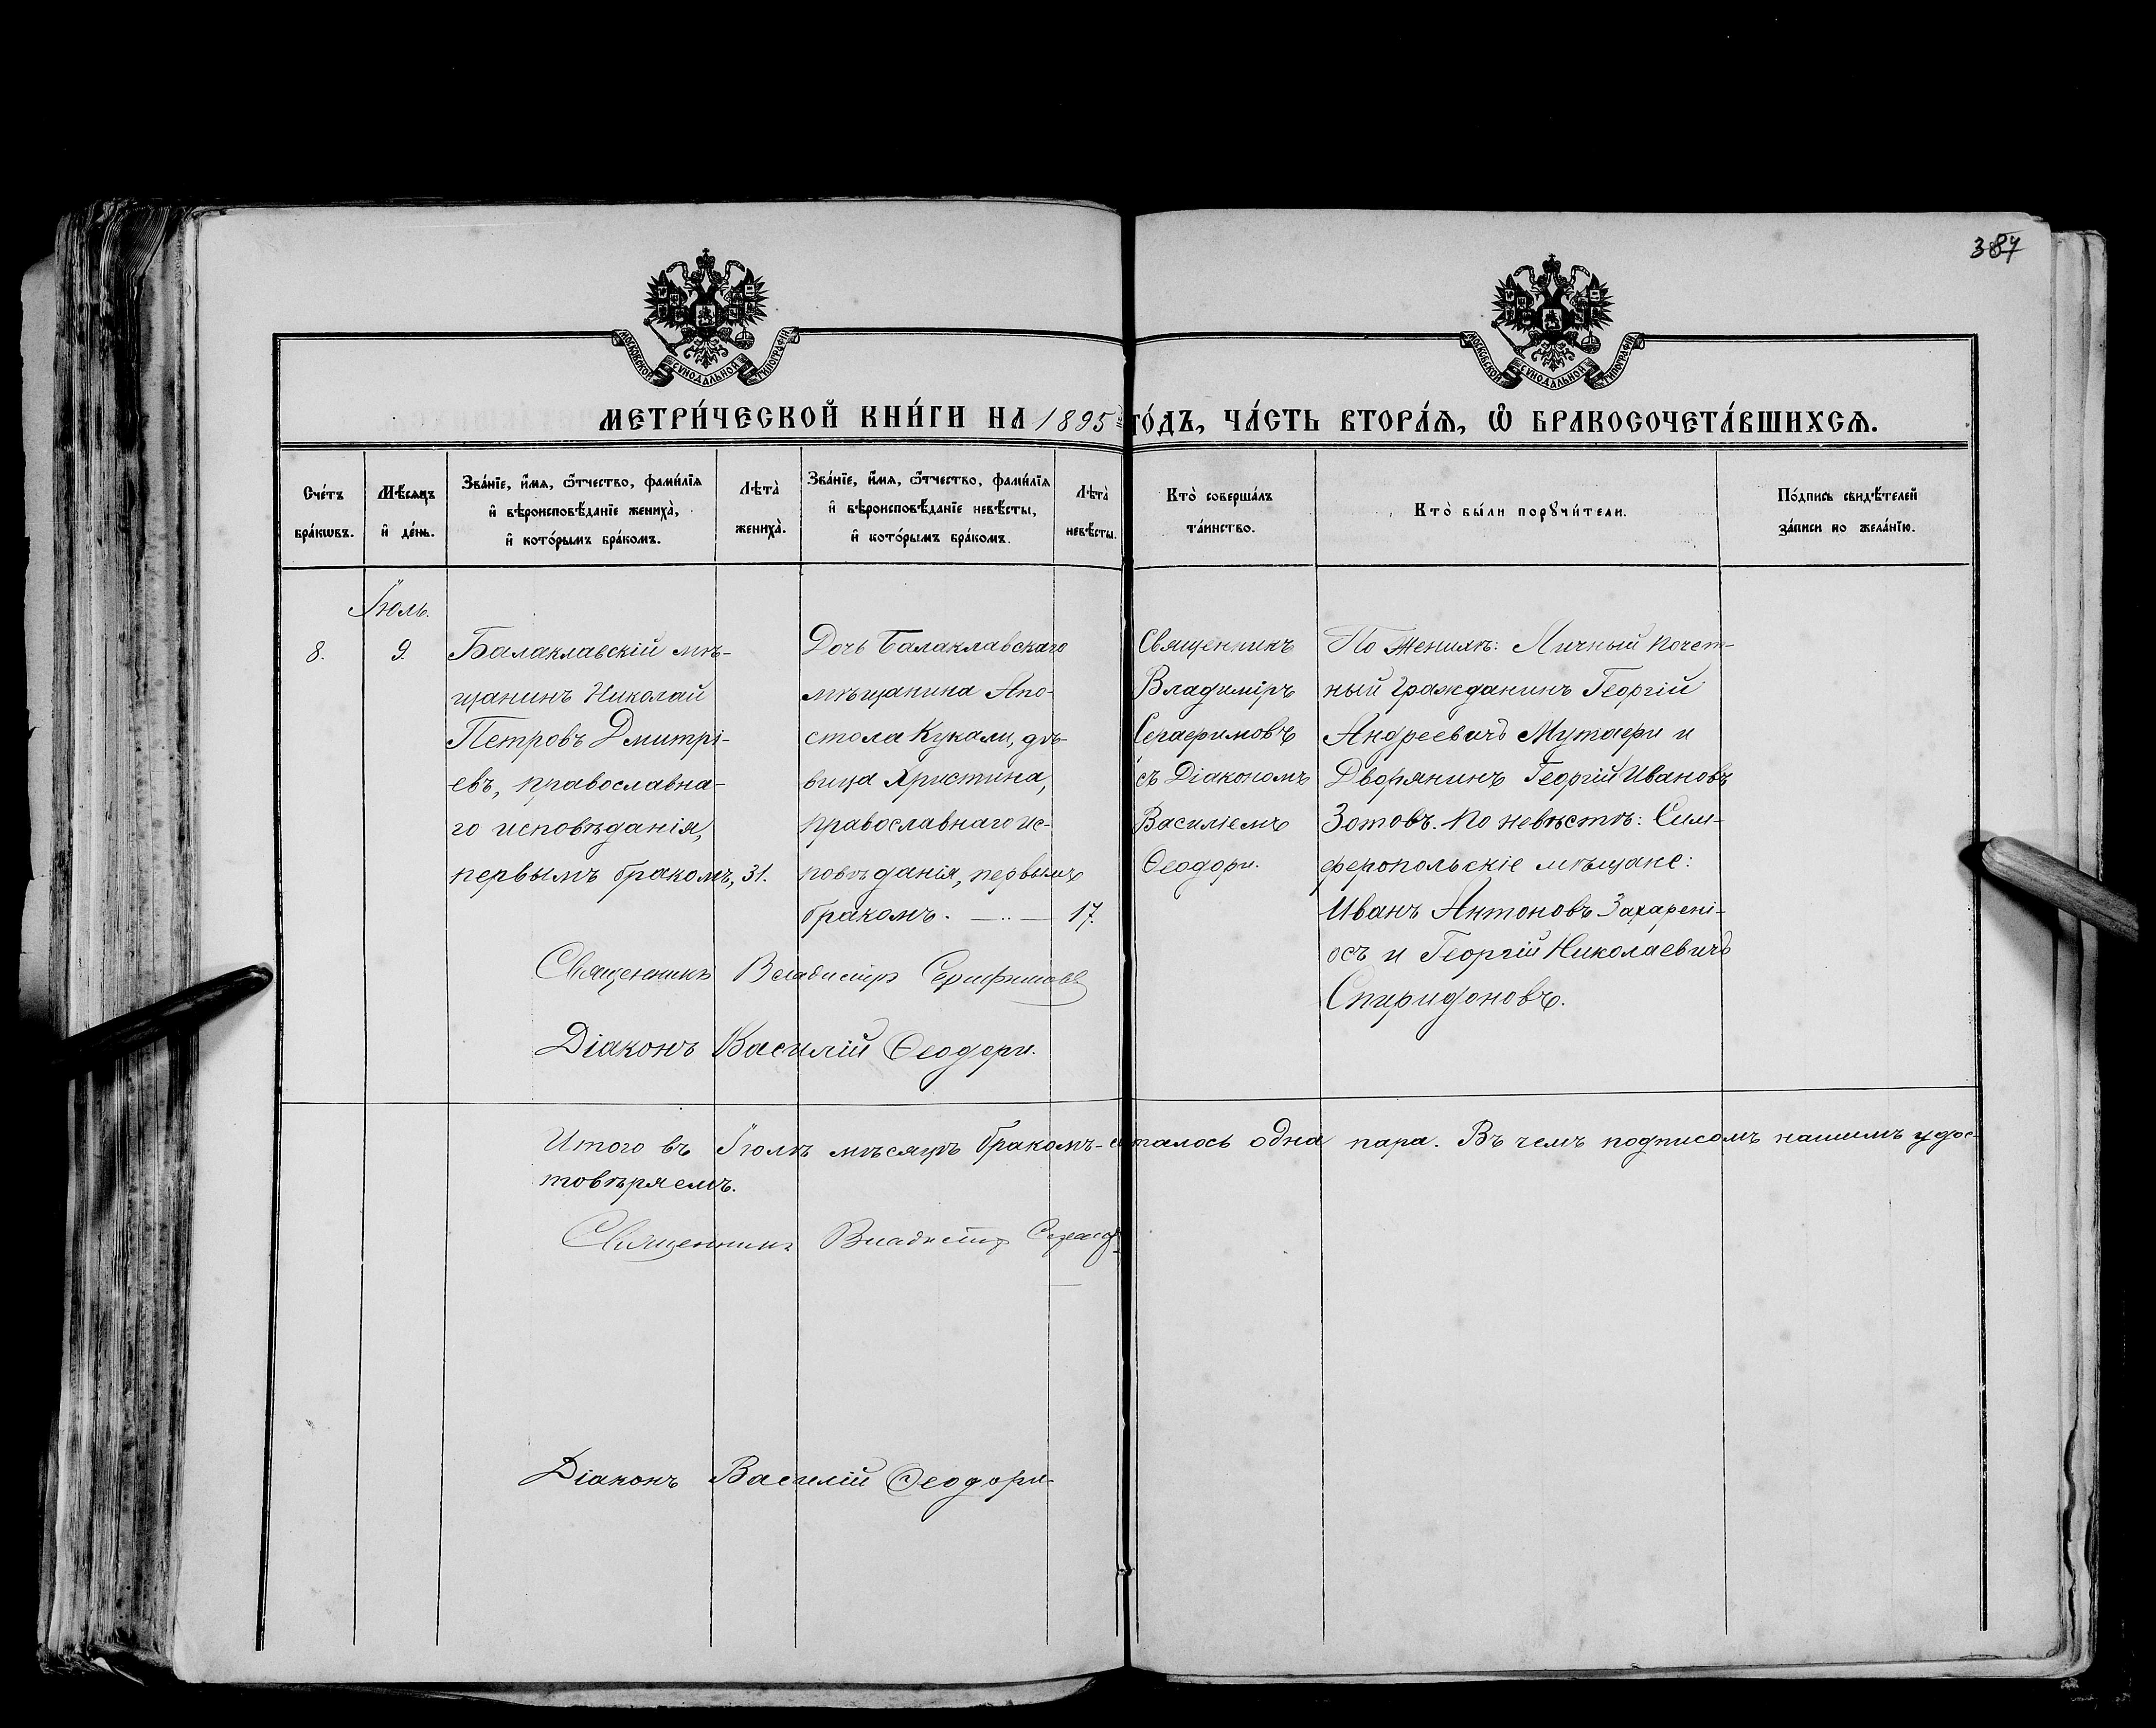 387
МОСКОВСКОЙ СУНОДАЛЬНОЙ ТИПОГРАФІИ
МОСКОВСКОЙ СУНОДАЛЬНОЙ ТИПОГРАФІИ
МЕТРИ́ЧЕСКОЙ КНИ́ГИ НА 1895 ГО́ДЪ, ЧА́СТЬ ВТОРА́Ѧ, Ѡ҆ БРАКОСОЧЕТА́ВШИХСѦ.
Сче́тъ
бра́кѡвъ.
Мѣ́сяцъ
и҆ де́нь.
Зва́нїе, и҆́мя, ѻ҆́тчество, фами́лїя
и҆ вѣроисповѣ́данїе жениха̀,
и҆ кото́рымъ бра́комъ.
Лѣта̀
жениха̀.
Зва́нїе, и҆́мя, ѻ҆́тчество, фами́лїя
и҆ вѣроисповѣ́данїе невѣ́сты,
и҆ кото́рымъ бра́комъ.
Лѣта̀
невѣ́сты.
Кто̀ соверша́лъ
та́инство.
Кто̀ бы́ли порꙋчи́тели.
По́дпись свидѣ́телей
за́писи по жела́нїю.
Іюль.
8.
9.
Балаклавскій мѣ-
щанинъ Николай
Петровъ Дмитрі-
евъ, православна-
го исповѣданія,
первымъ бракомъ,
31.
Дочь Балаклавскаго
мѣщанина Апо-
стола Кукали, дѣ-
вица Христина,
православнаго ис-
повѣданія, первымъ
бракомъ.
17.
Священникъ
Владиміръ
Серафимовъ
съ Діакономъ
Василіемъ
Ѳеодори.
По женихѣ: Личный почет-
ный гражданинъ Георгій
Андреевичъ Мутафи и
Дворянинъ Георгій Ивановъ
Зотовъ. По невѣстѣ: Сим-
феропольскіе мѣщане:
Иванъ Антоновъ Захарені-
осъ и Георгій Николаевичъ
Спиридоновъ.
Священникъ Владиміръ Серафимовъ
Діаконъ Василій Ѳеодори.
Итого въ Іюлѣ мѣсяцѣ бракомъ-сталось одна пара. Въ чемъ подписомъ нашимъ удос-
товѣряемъ.
Священникъ Владиміръ
Діаконъ Василій Ѳеодори